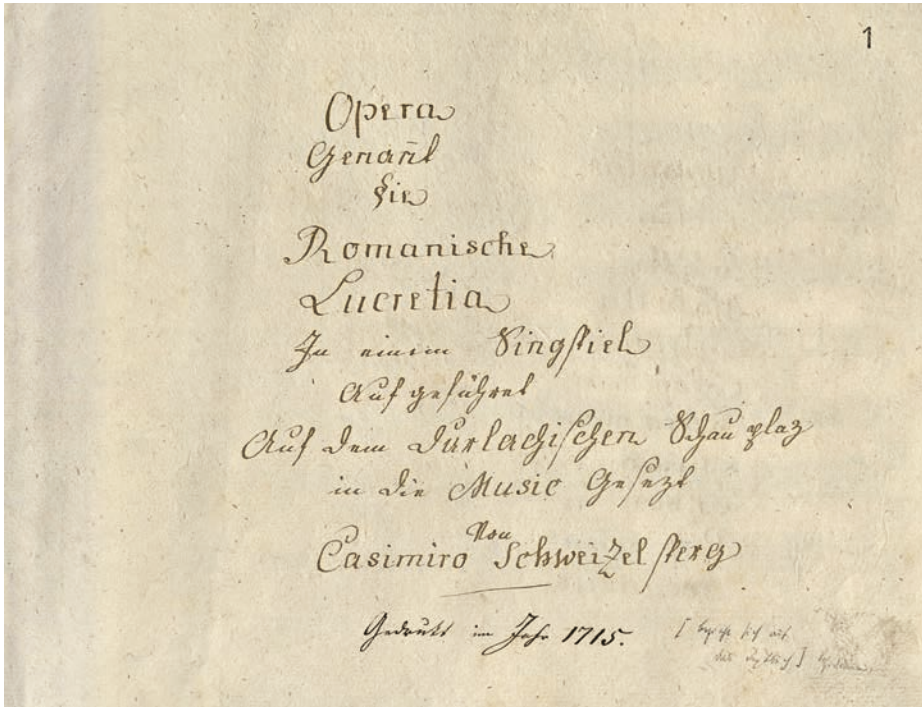 1
Opera
Genañt
Die
Romanische
Lucretia
In einem Singspiel
Auf geführet
Auf dem Durlachischen Schau plaz
in die Music Gesezt
Von
Casimiro Schweizelsperg
Gedrukt im Jahr 1715.
[ sich auf
das ]